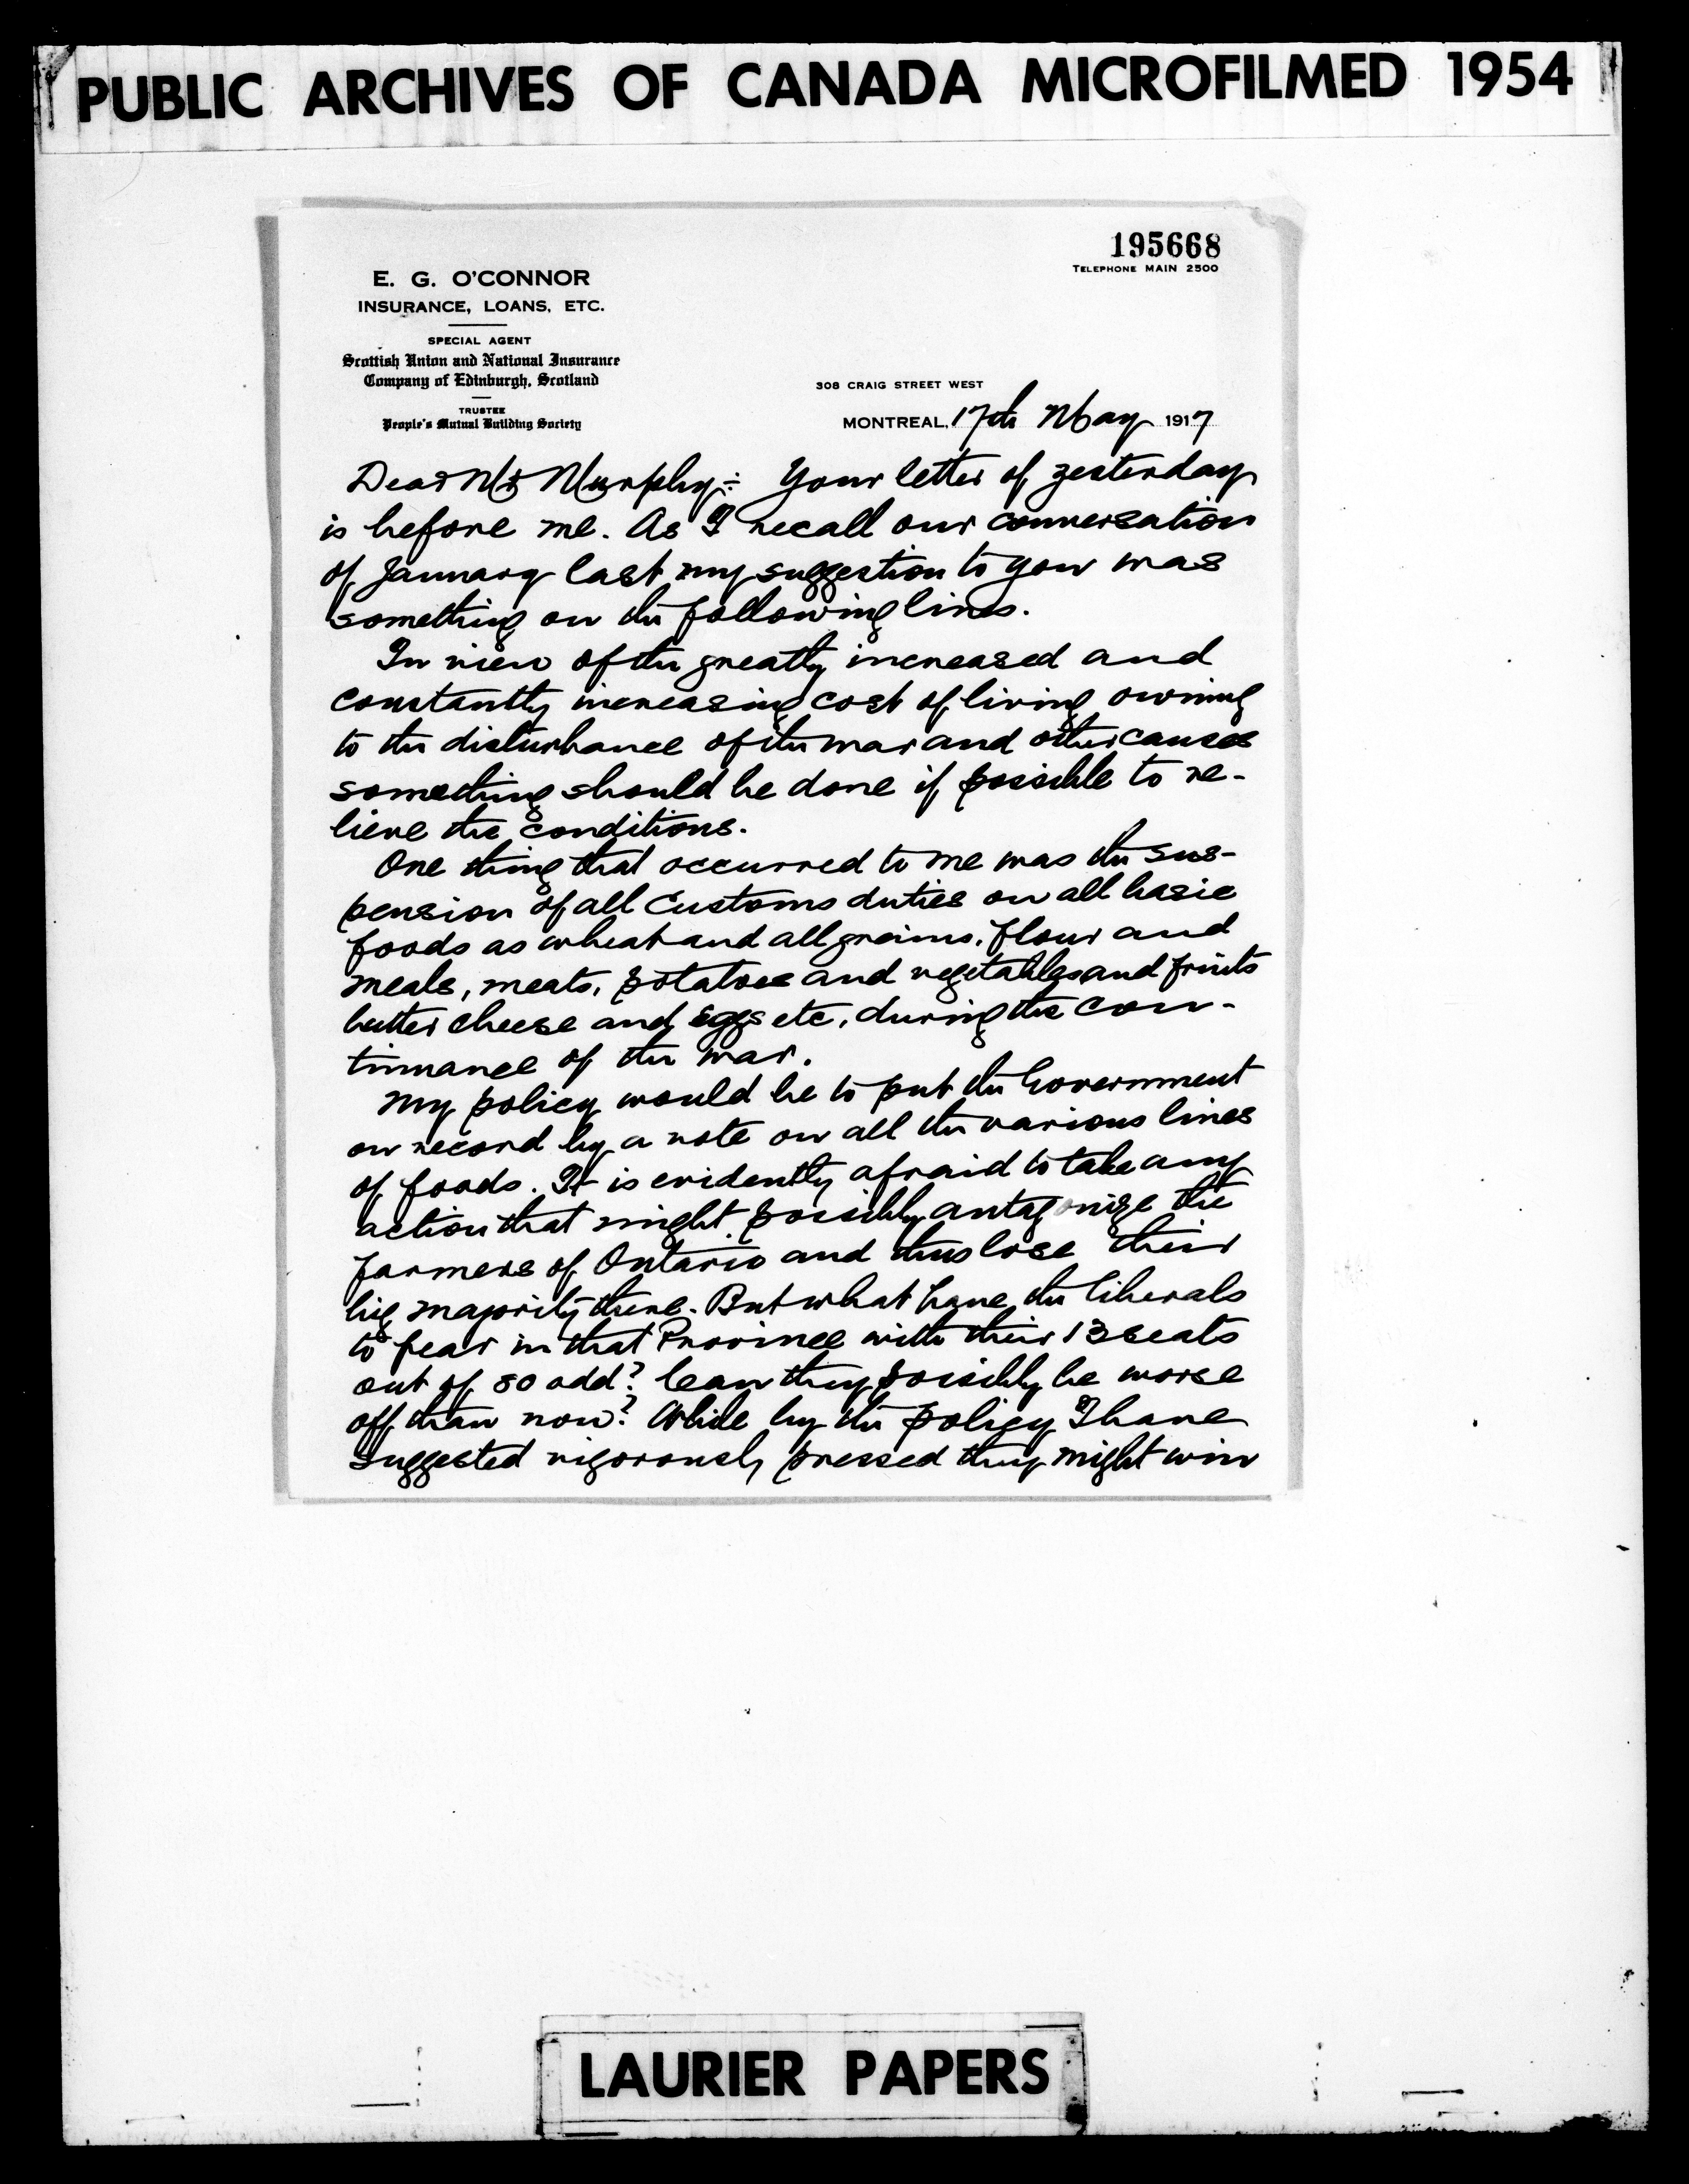 PUBLIC ARCHIVES OF CANADA MICROFILMED 1954
195668
TELEPHONE MAIN 2500
E. G. O'CONNOR
INSURANCE, LOANS, ETC.
SPECIAL AGENT
Scottish Union and National Insurance
Company of Edinburgh, Scotland
TRUSTEE
People's Mutual Building Society
308 CRAIG STREET WEST
MONTREAL, 17th May 1917
Dear Mr Murphy:- Your letter of yesterday
is before me. As I recall our conversation
of January last my suggestion to you was
something on the following lines.
In view of the greatly increased and
constantly increasing cost of living owning
to the disturbance of the war and other causes
something should be done if possible to re-
lieve the conditions.
One thing that occurred to me was the sus-
pension of all Customs duties on all basic
foods as wheat and all grains, flour and
meals, meats, potatoes and vegetables and fruits
butter cheese and eggs etc, during the con-
tinuance of the war.
My policy would be to put the Government
on record by a vote on all the various lines
of foods. It is evidently afraid to take any
action that might possibly antagonize the
farmers of Ontario and thus lose their
big majority there. But what have the liberals
to fear in that Province with their 13 seats
out of 80 odd? Can they possibly be worse
off than now? While by the policy I have
suggested vigorously pressed they might win
LAURIER PAPERS